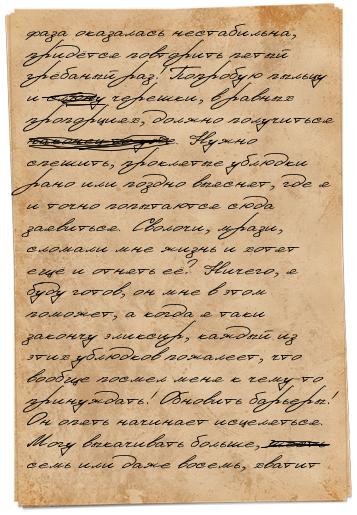 фаза оказалась нестабильна,
придётся повторить пятый
гребаный раз! Попробую пыльцу
и черешки, в равных
пропорциях, должно получиться
Нужно
спешить, проклятые ублюдки
рано или поздно выяснят, где я
и точно попытаются сюда
заявиться. Сволочи, мрази,
сломали мне жизнь и хотят
ещё и отнять её? Ничего, я
буду готов, он мне в этом
поможет, а когда я таки
закончу эликсир, каждый из
этих ублюдков пожалеет, что
вообще посмел меня к чему-то
принуждать! Обновить барьеры!
Он опять начинает исцеляться.
Могу выкачивать больше,
семь или даже восемь, хватит